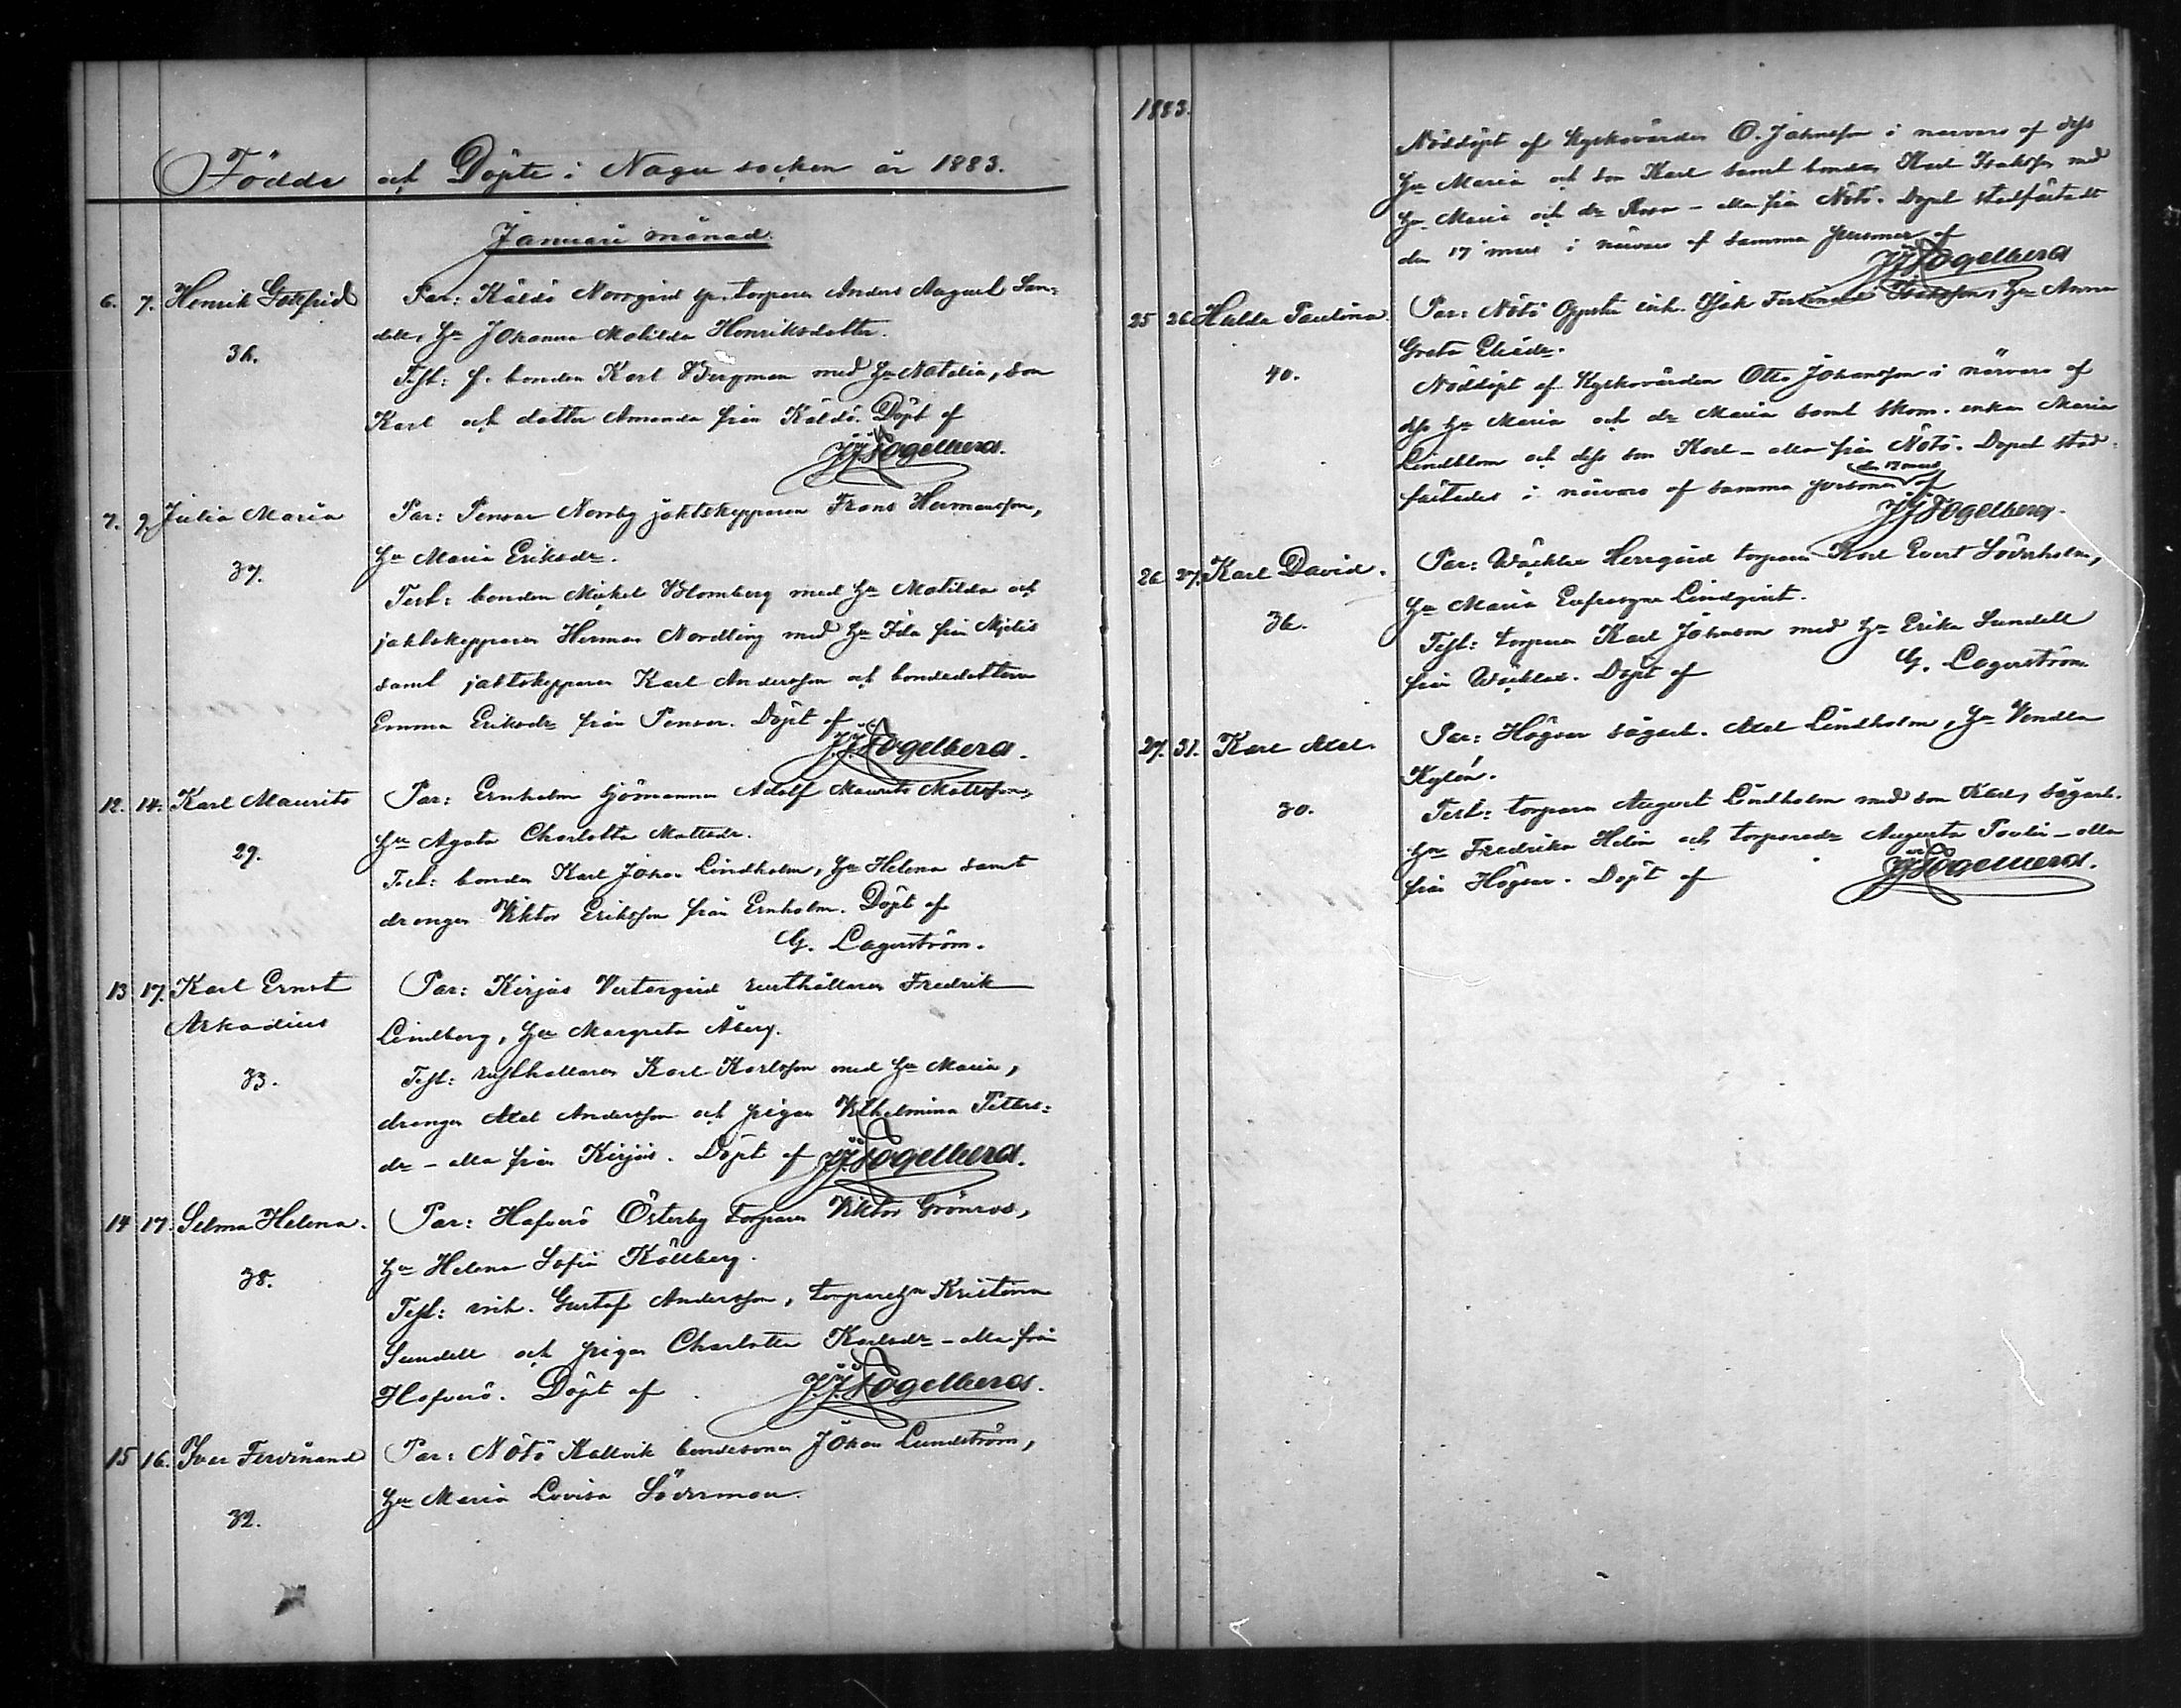 Födde och Döpte i Nagu socken år 1883.
Januari månad.
6. 7. Henrik Gottfrid
36.
Par: Käldö Norrgård torparen Anders August Sun-
dell, Hu Johanna Matilda Henriksdotter.
Test: f. bonden Karl Bergman med Hu Natalia, son
Karl och dotter Amanda från Käldö. Döpt af
J.J. Fogelberg.
7. 9. Julia Maria
37.
Par: Pensar Norrby jaktskepparen Frans Hermansson,
Hu Maria Eriksdr.
Test: bonden Mickel Blomberg med Hu Matilda och
jaktskepparen Herman Nordling med Hu Ida från Mjelis
samt jaktskepparen Karl Andersson och bondedottern
Emma Eriksdr från Pensar. Döpt af
J.J. Fogelberg.
12. 14. Karl Maurits
29.
Par: Ernholm sjömannen Adolf Maurits Mattsson,
Hu Agata Charlotta Mattsdr.
Test: bonden Karl Johan Lindholm, Hu Helena samt
drengen Viktor Eriksson från Ernholm. Döpt af
G. Lagerström.
13 17. Karl Ernst
Arkadius
33.
Par: Kirjais Vestergård rusthållaren Fredrik
Lindberg, Hu Margreta Åberg.
Test: rusthållaren Karl Karlsson med Hu Maria,
drengen Axel Andersson och pigan Vilhelmina Peters-
dr - alla från Kirjais. Döpt af J.J. Fogelberg.
14 17. Selma Helena.
38.
Par: Hafverö Österby torparen Viktor Grönroos,
Hu Helena Sofia Källberg.
Test: inh. Gustaf Andersson, torpareHu Kristina
Sundell och pigan Charlotta Karlsdr - alla från
Hafverö. Döpt af J.J. Fogelberg.
15 16. Ivar Ferdinand
32.
Par: Nötö Kallvik bondesonen Johan Lundström,
Hu Maria Lovisa Söderman.
1883.
Nöddöpt af Kyrkovärden O. Johansson i närvaro af dess
Hu Maria och son Karl samt bonden Karl Isaksson med
Hu Maria och dr Rosa - alla från Nötö. Dopet stadfästadt
den 17 mars i närvaro af samma personer af
J.J. Fogelberg
25 26 Hulda Paulina.
40.
Par: Nötö inh. Isak Ferdinand Isaksson, Hu Anna
Greta Eliædr.
Nöddöpt af Kyrkovärden Otto Johansson i närvaro af
dess Hu Maria och dr Maria samt skom. enkan Maria
Lindblom och dess son Karl - alla från Nötö. Dopet stad-
fästades i närvaro af samma personer den 17 mars af
J.J. Fogelberg.
26 27. Karl David.
36.
Par: Wäcklax Herrgård torparen Karl Evert Söderholm,
Hu Maria Eufrosyne Lindqvist.
Test: torparen Karl Johnson med Hu Erika Sundell
från Wäcklax. Döpt af G. Lagerström
27. 31. Karl Axel.
30.
Par: Högsar sågarb. Axel Lindholm, Hu Vendla
Kylén.
Test: torparen August Lindholm med son Karl, sågarb.
Hu Fredrika Helin och torparedr Augusta Povlin - alla
från Högsar. Döpt af J.J. Fogelberg.